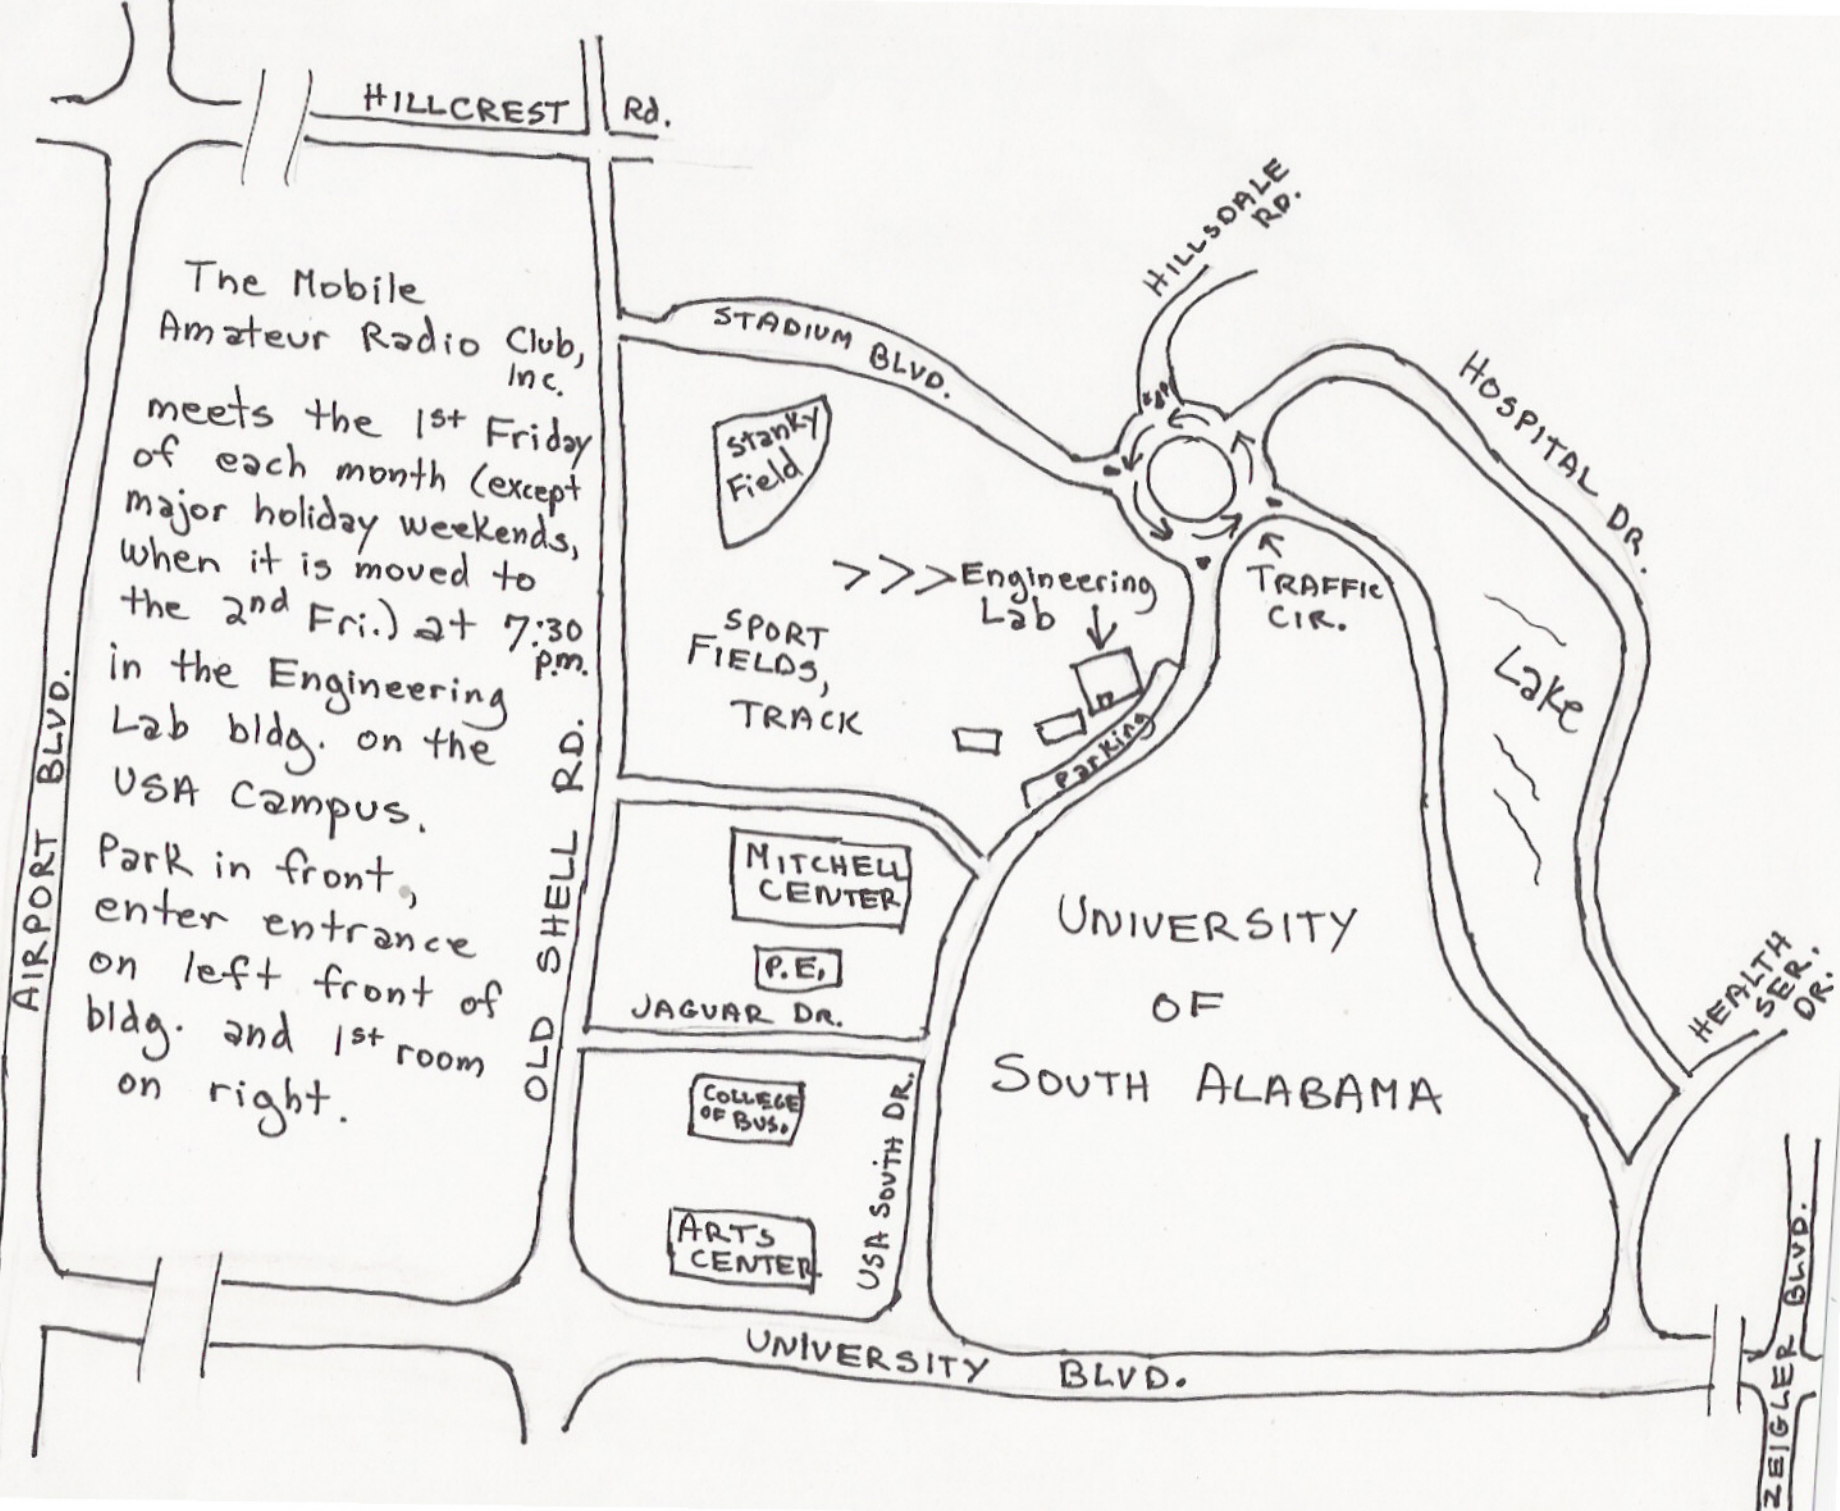 HILLCREST Rd.
HILLSDALE
RD.
The Mobile
Amateur Radio Club,
Inc.
meets the 1st Friday
of each month (except
major holiday weekends,
when it is moved to
the 2nd Fri.) at 7:30
p.m.
in the Engineering
Lab bldg. on the
USA Campus.
Park in front,
enter entrance
on left front of
bldg. and 1st room
on right.
AIRPORT BLVD.
OLD SHELL RD.
STADIUM BLVD.
HOSPITAL DR.
Stanky
Field
>>>Engineering
Lab
TRAFFIC
CIR.
SPORT
FIELDS,
TRACK
Parking
Lake
MITCHELL
CENTER
P.E.
JAGUAR DR.
UNIVERSITY
OF
SOUTH ALABAMA
HEALTH
SER.
DR.
COLLEGE
OF BUS.
USA SOUTH DR.
ARTS
CENTER
UNIVERSITY BLVD.
ZEIGLER BLVD.